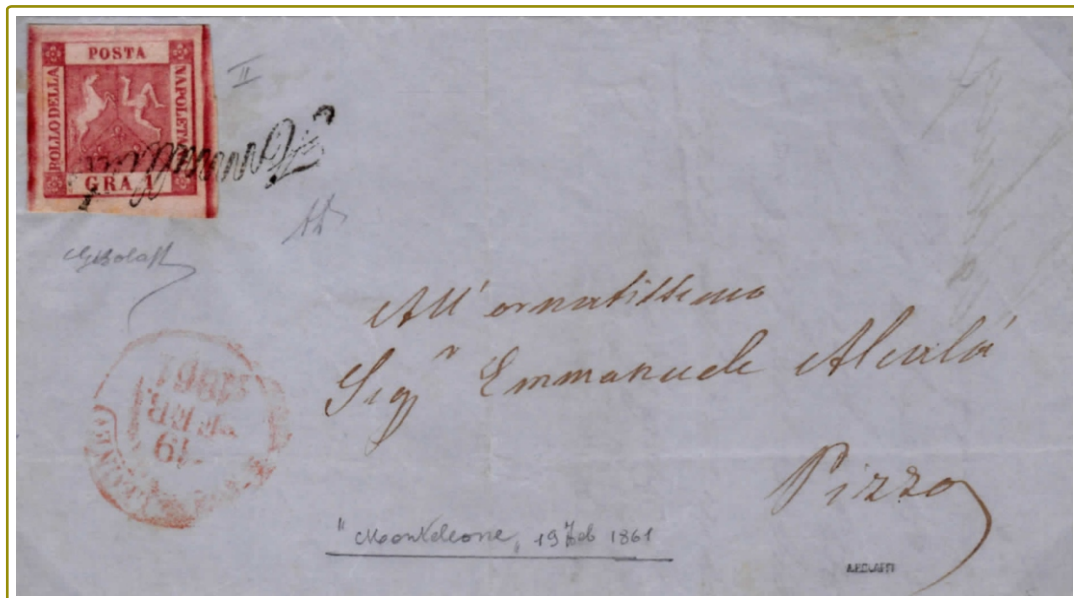 POSTA
BOLLO DELLA
NAPOLETA
GRA 1
II
Annullato
All' ornatissimo
Sigr Emmanuele Alcalà
Pizzo
19
FEB
1861
" Monteleone, 19 Feb 1861